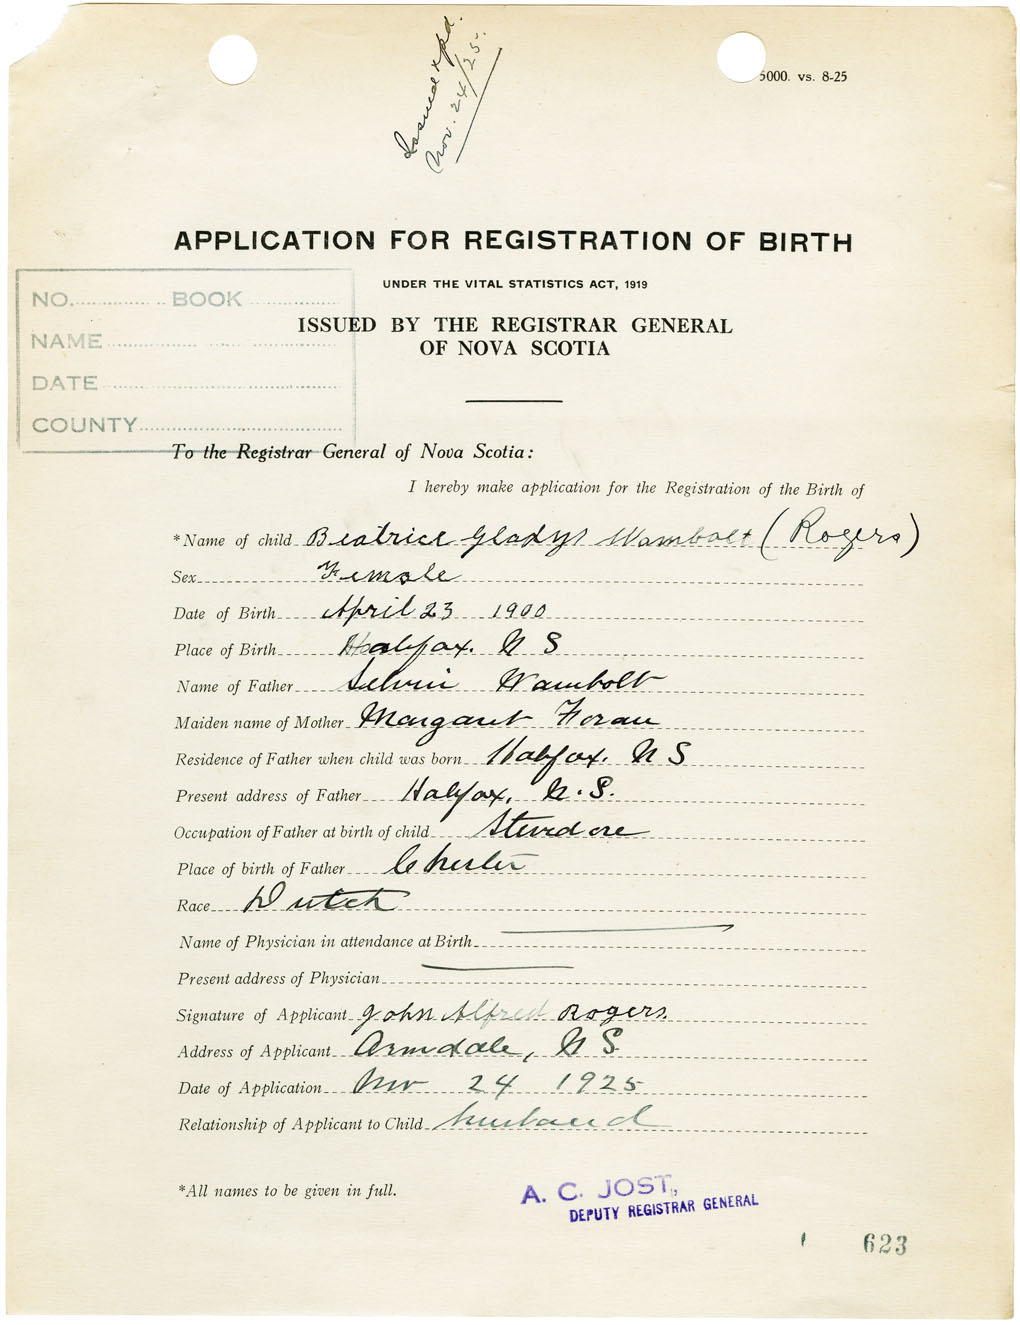 Issued & pd.
Nov. 24/25.
5000. vs. 8-25
APPLICATION FOR REGISTRATION OF BIRTH
UNDER THE VITAL STATISTICS ACT, 1919
ISSUED BY THE REGISTRAR GENERAL
OF NOVA SCOTIA
NO. BOOK
NAME
DATE
COUNTY
To the Registrar General of Nova Scotia:
I hereby make application for the Registration of the Birth of
*Name of child Beatrice Gladys Wambolt (Rogers)
Sex Female
Date of Birth April 23 1900
Place of Birth Halifax. N S
Name of Father Selvin Wambolt
Maiden name of Mother Margaret Foran
Residence of Father when child was born Halifax. N S
Present address of Father Halifax, N.S.
Occupation of Father at birth of child Stevedore
Place of birth of Father Chester
Race Dutch
Name of Physician in attendance at Birth
Present address of Physician
Signature of Applicant John Alfred Rogers
Address of Applicant Armdale, N S
Date of Application Nov 24 1925
Relationship of Applicant to Child husband
*All names to be given in full.
A. C. JOST,
DEPUTY REGISTRAR GENERAL
623